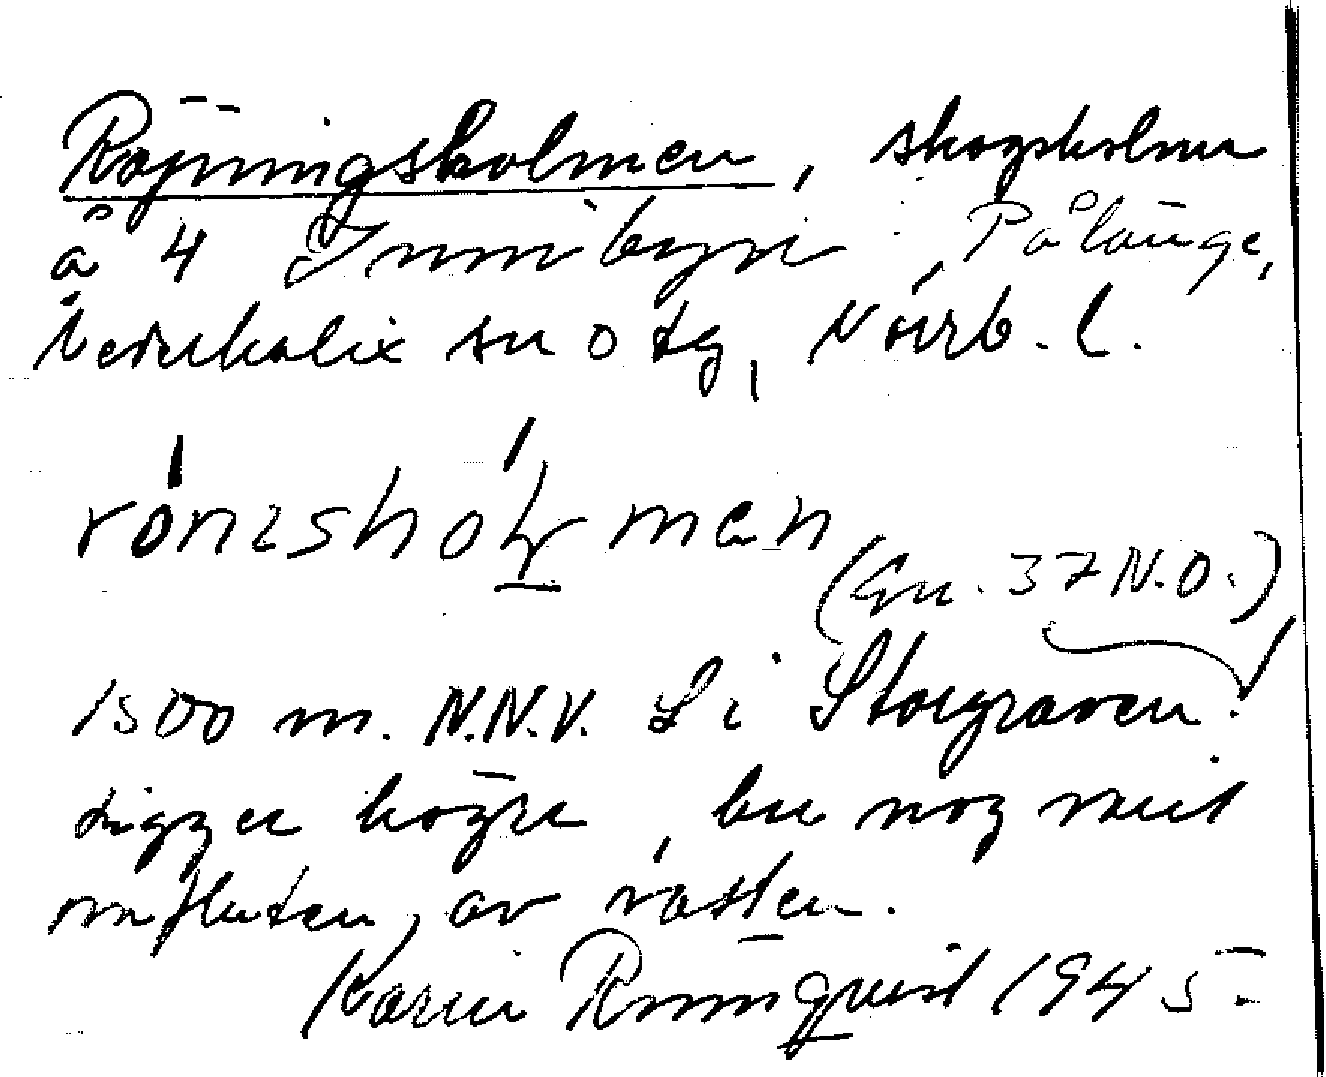 Röjningsholmen, skogsholme
å 4 Innibyn, Pålänge,
Nederkalix sn o tg, Norrb. l.
rónishólmen
(Gn. 37 N.O.)
1500 m. N.N.V. L i Storgraven!
Ligger högre, bu nog mest
omfluten, av vatten.
Karin Rönnqvist 1945.